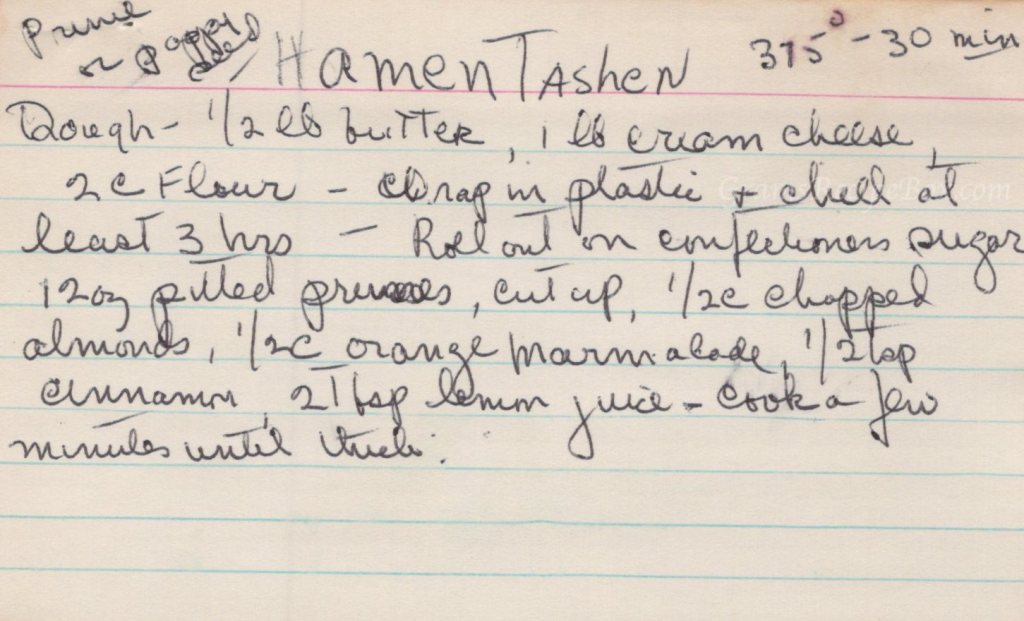 Prune
or Poppy
seed
HamenTashen 375° - 30 min
Dough - 1/2 lb butter, 1 lb cream cheese,
2 C Flour - Wrap in plastic + chill at
least 3 hrs - Roll out on confectioners sugar
12oz pitted prunes, cut up, 1/2c chopped
almonds, 1/2c orange marmalade, 1/2 tsp
cinnamon, 2 Tbsp lemon juice - cook a few
minutes until thick.